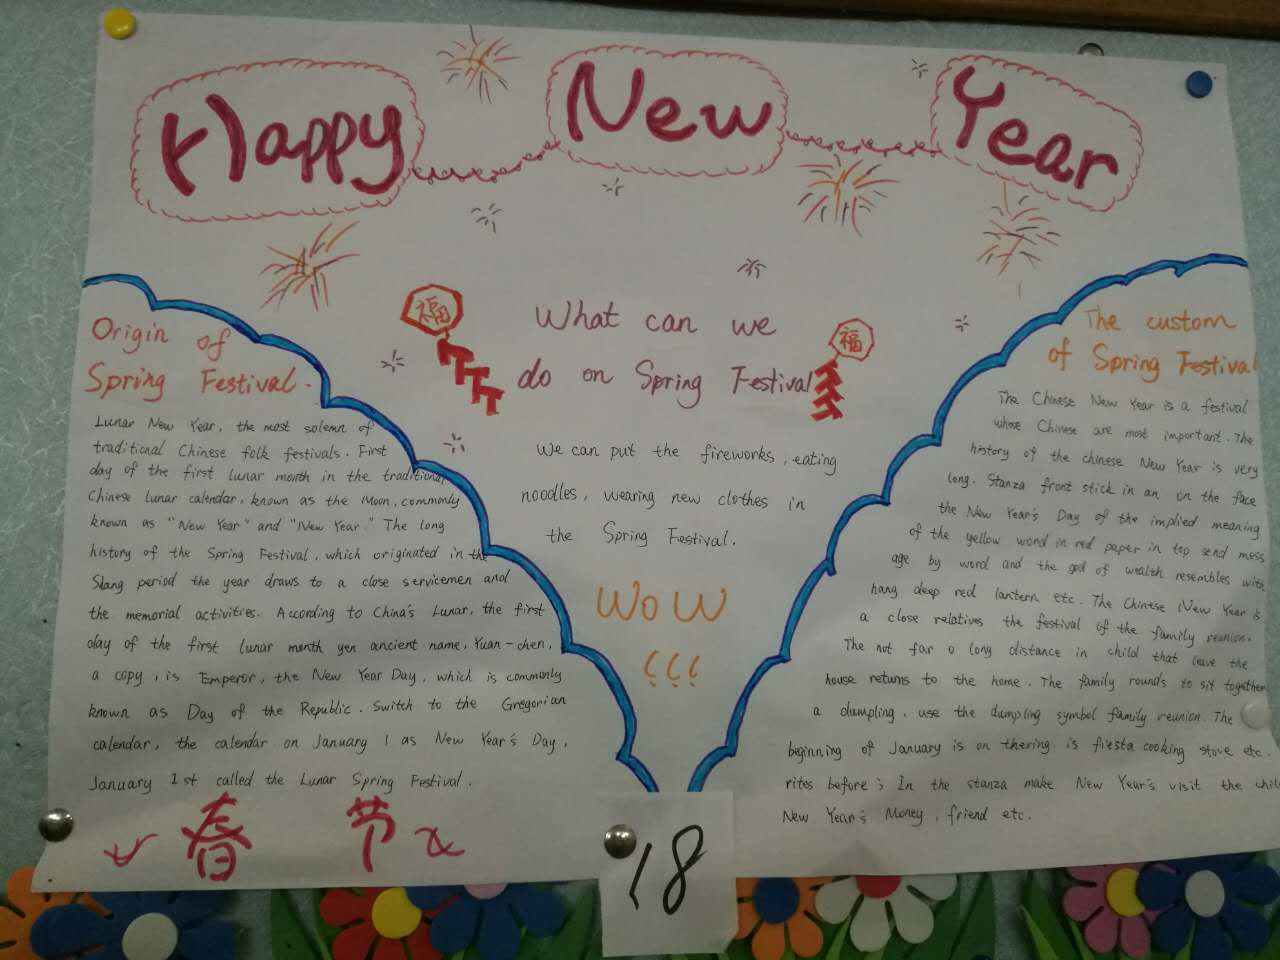 Happy New Year
福
福
Origin of
Spring Festival.
Lunar New Year, the most solemn of
traditional Chinese folk festivals. First
day of the first lunar month in the traditional
Chinese lunar calendar, known as the Moon, commonly
known as "New Year" and "New Year." The long
history of the Spring Festival, which originated in the
Slang period the year draws to a close servicemen and
the memorial activities. According to China's Lunar, the first
day of the first lunar month yen ancient name, Yuan-chen,
a copy, is Emperor, the New Year Day, which is commonly
known as Day of the Republic. Switch to the Gregorian
calendar, the calendar on January 1 as New Year's Day,
January 1st called the Lunar Spring Festival.
春 节
What can we
do on Spring Festival
We can put the fireworks, eating
noodles, wearing new clothes in
the Spring Festival.
WOW
!!!
The custom
of Spring Festival
The Chinese New Year is a festival
whose Chinese are most important. The
history of the chinese New Year is very
long. Stanza front stick in an on the face
the New Year's Day of the implied meaning
of the yellow word in red paper in top send mess
age by word and the god of wealth resembles with
hang deep red lantern etc. The Chinese New Year is
a close relatives the festival of the family reunion.
The not far o long distance in child that leave the
house returns to the home. The family rounds to sit together
a dumpling, use the dumpling symbol family reunion. The
beginning of January is on thering is fiesta cooking stove etc.
rites before; In the stanza make New Year's visit the chil
New Year's Money, friend etc.
18